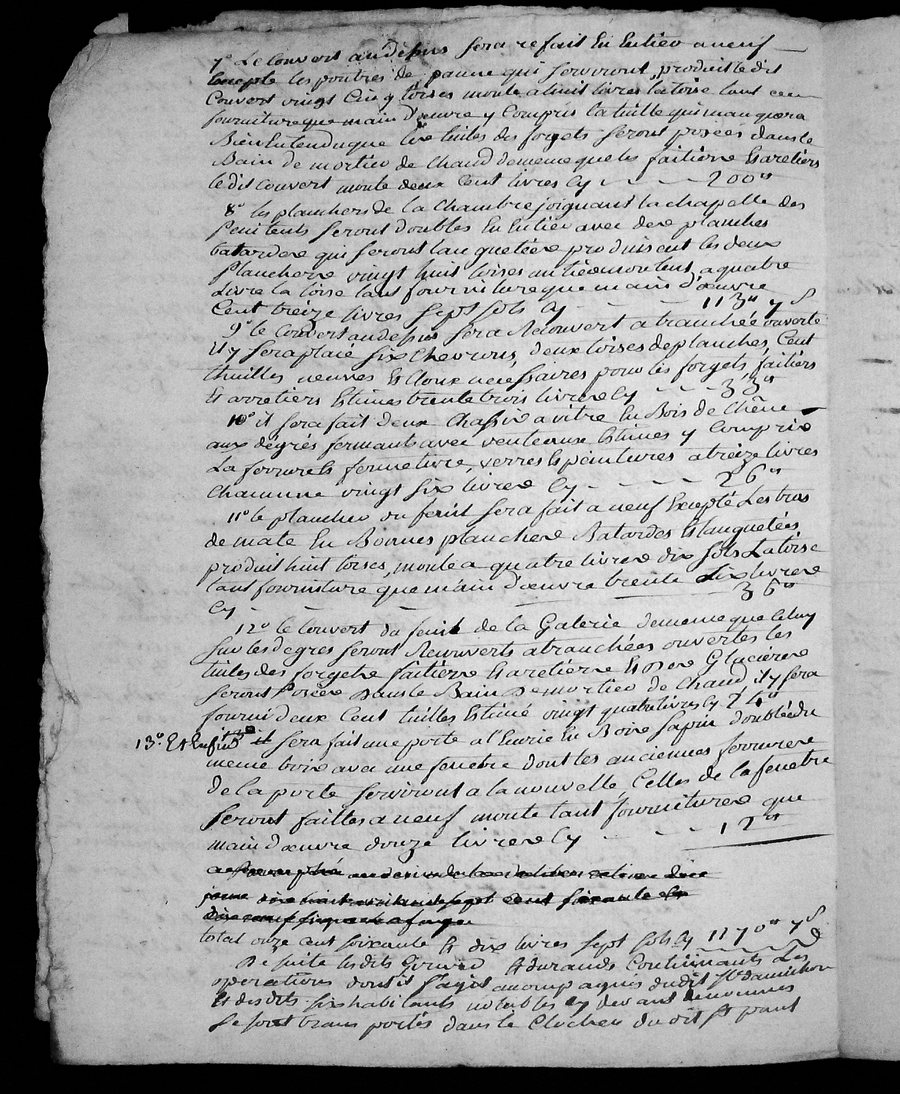 7° Le Couvert au dessus sera refait En Entier a neuf
Excepté les poutres de panne qui serviront, produit le dit
Couvert vingt Cinq toises monte a huit livres la toise tant en
fourniture que main d'œuvre y Compris la tuille qui manquera
Bien Entendu que les tuiles des forgets seront posées dans le
Bain de mortier de Chaud de meme que les faitiere Et aretiers
le dit couvert monte deux Cent livres Cy - - - - 200"
8° les planchers de la Chambre joignant la chapelle des
penitents seront doubles En Entier avec des planches
batardes qui seront languetées produisent les deux
Planchers vingt huit toises montent a quatre
Livre la toise tant fourniture que main d'œuvre
Cent treize livres sept sols Cy - - - - 113" 7 s
9° le Couvert au dessus sera Recouvert a tranchée ouverte
il y sera placé six Chevrons, deux toises de planches, Cent
thuilles neuves Et Cloux necessaires pour les forgets, faitiers
Et arretiers Estimés trente trois livres Cy - - - 33"
10° il sera fait deux Chassis a vitre En Bois de Chêne
aux degrés fermants avec venteaux Estimes y Compris
La ferrure Et fermeture, verres Et peintures a treize livres
Chacunne vingt six livres Cy - - - - 26"
11° le plancher du fenit sera fait a neuf Excepté Les tras
de mate En Bonnes planches Batardes Et languetées
produit huit toises, monte a quatre livres dix sols La toise
tant fourniture que main d'œuvre trente six livres
Cy - - - - - - - - 36"
12° le Couvert du fenit de la Galerie de meme que Celuy
sur les degres seront Recouverts a tranchées ouvertes les
tuiles des forgets faitiere Et aretiere Et Glaciere
seront Posées Dans le Bain De mortier de Chaud il y sera
fourni deux Cent tuilles Estimé vingt quatre livres Cy 24"
13° Et Enfin il sera fait une porte a l'Ecurie En Bois sapin doublée du
meme bois avec une fenetre dont les anciennes ferrures
de la porte serviront a la nouvelle, Celles de la fenetre
seront faittes a neuf monte tant fournitures que
main d'œuvre douze livres Cy - - - - 12"
total onze cent soixante Et dix livres sept sols Cy 1170" 7 s
De suite les dits Girard Et durand Continuants Les
operations dont il s'agit accompagnés du dit Sr
Et des dits six habitants notables Cy devant denommés
se sont trans portés dans le Clocher du dit St paul